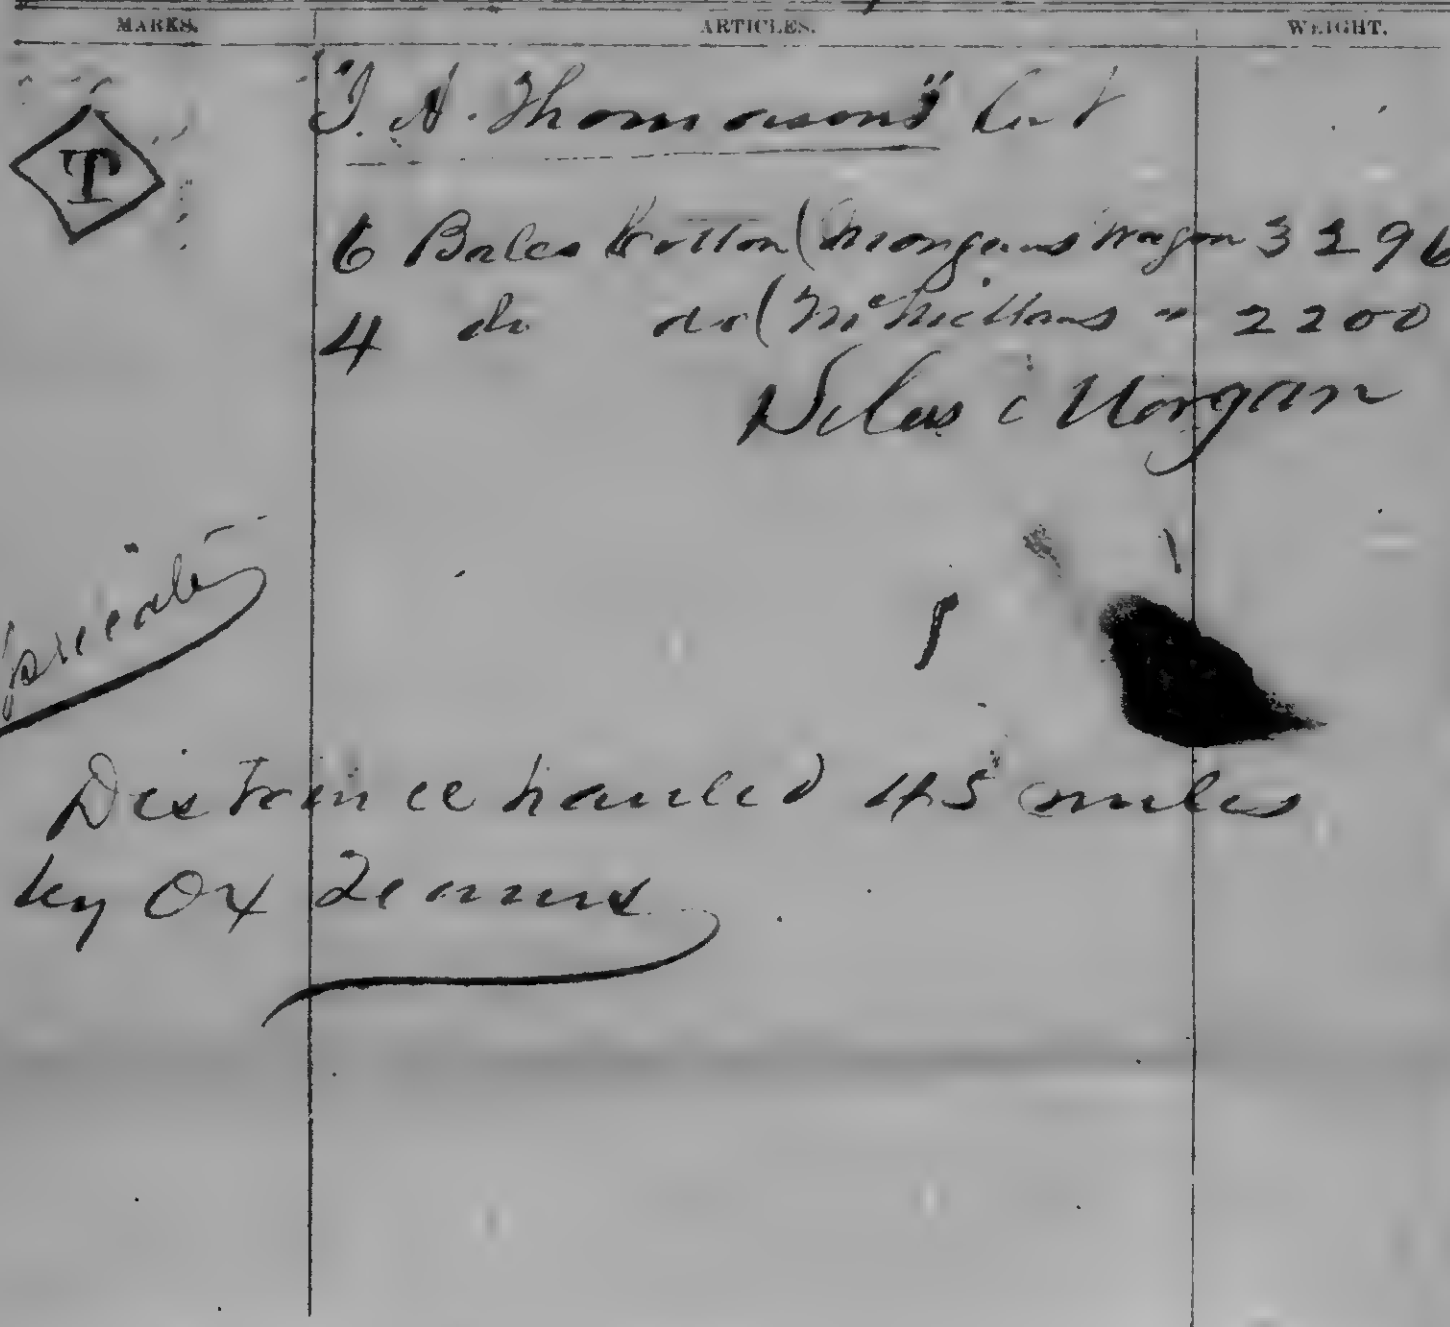 MARKS. ARTICLES. WEIGHT.
T
"J. A. Thomasons"
6 Bales Cotton (Morgans Wagon 3296
4 do do (McMillans " 2200
Silas C Morgan
Distance hauled 45 miles
by Ox Teams